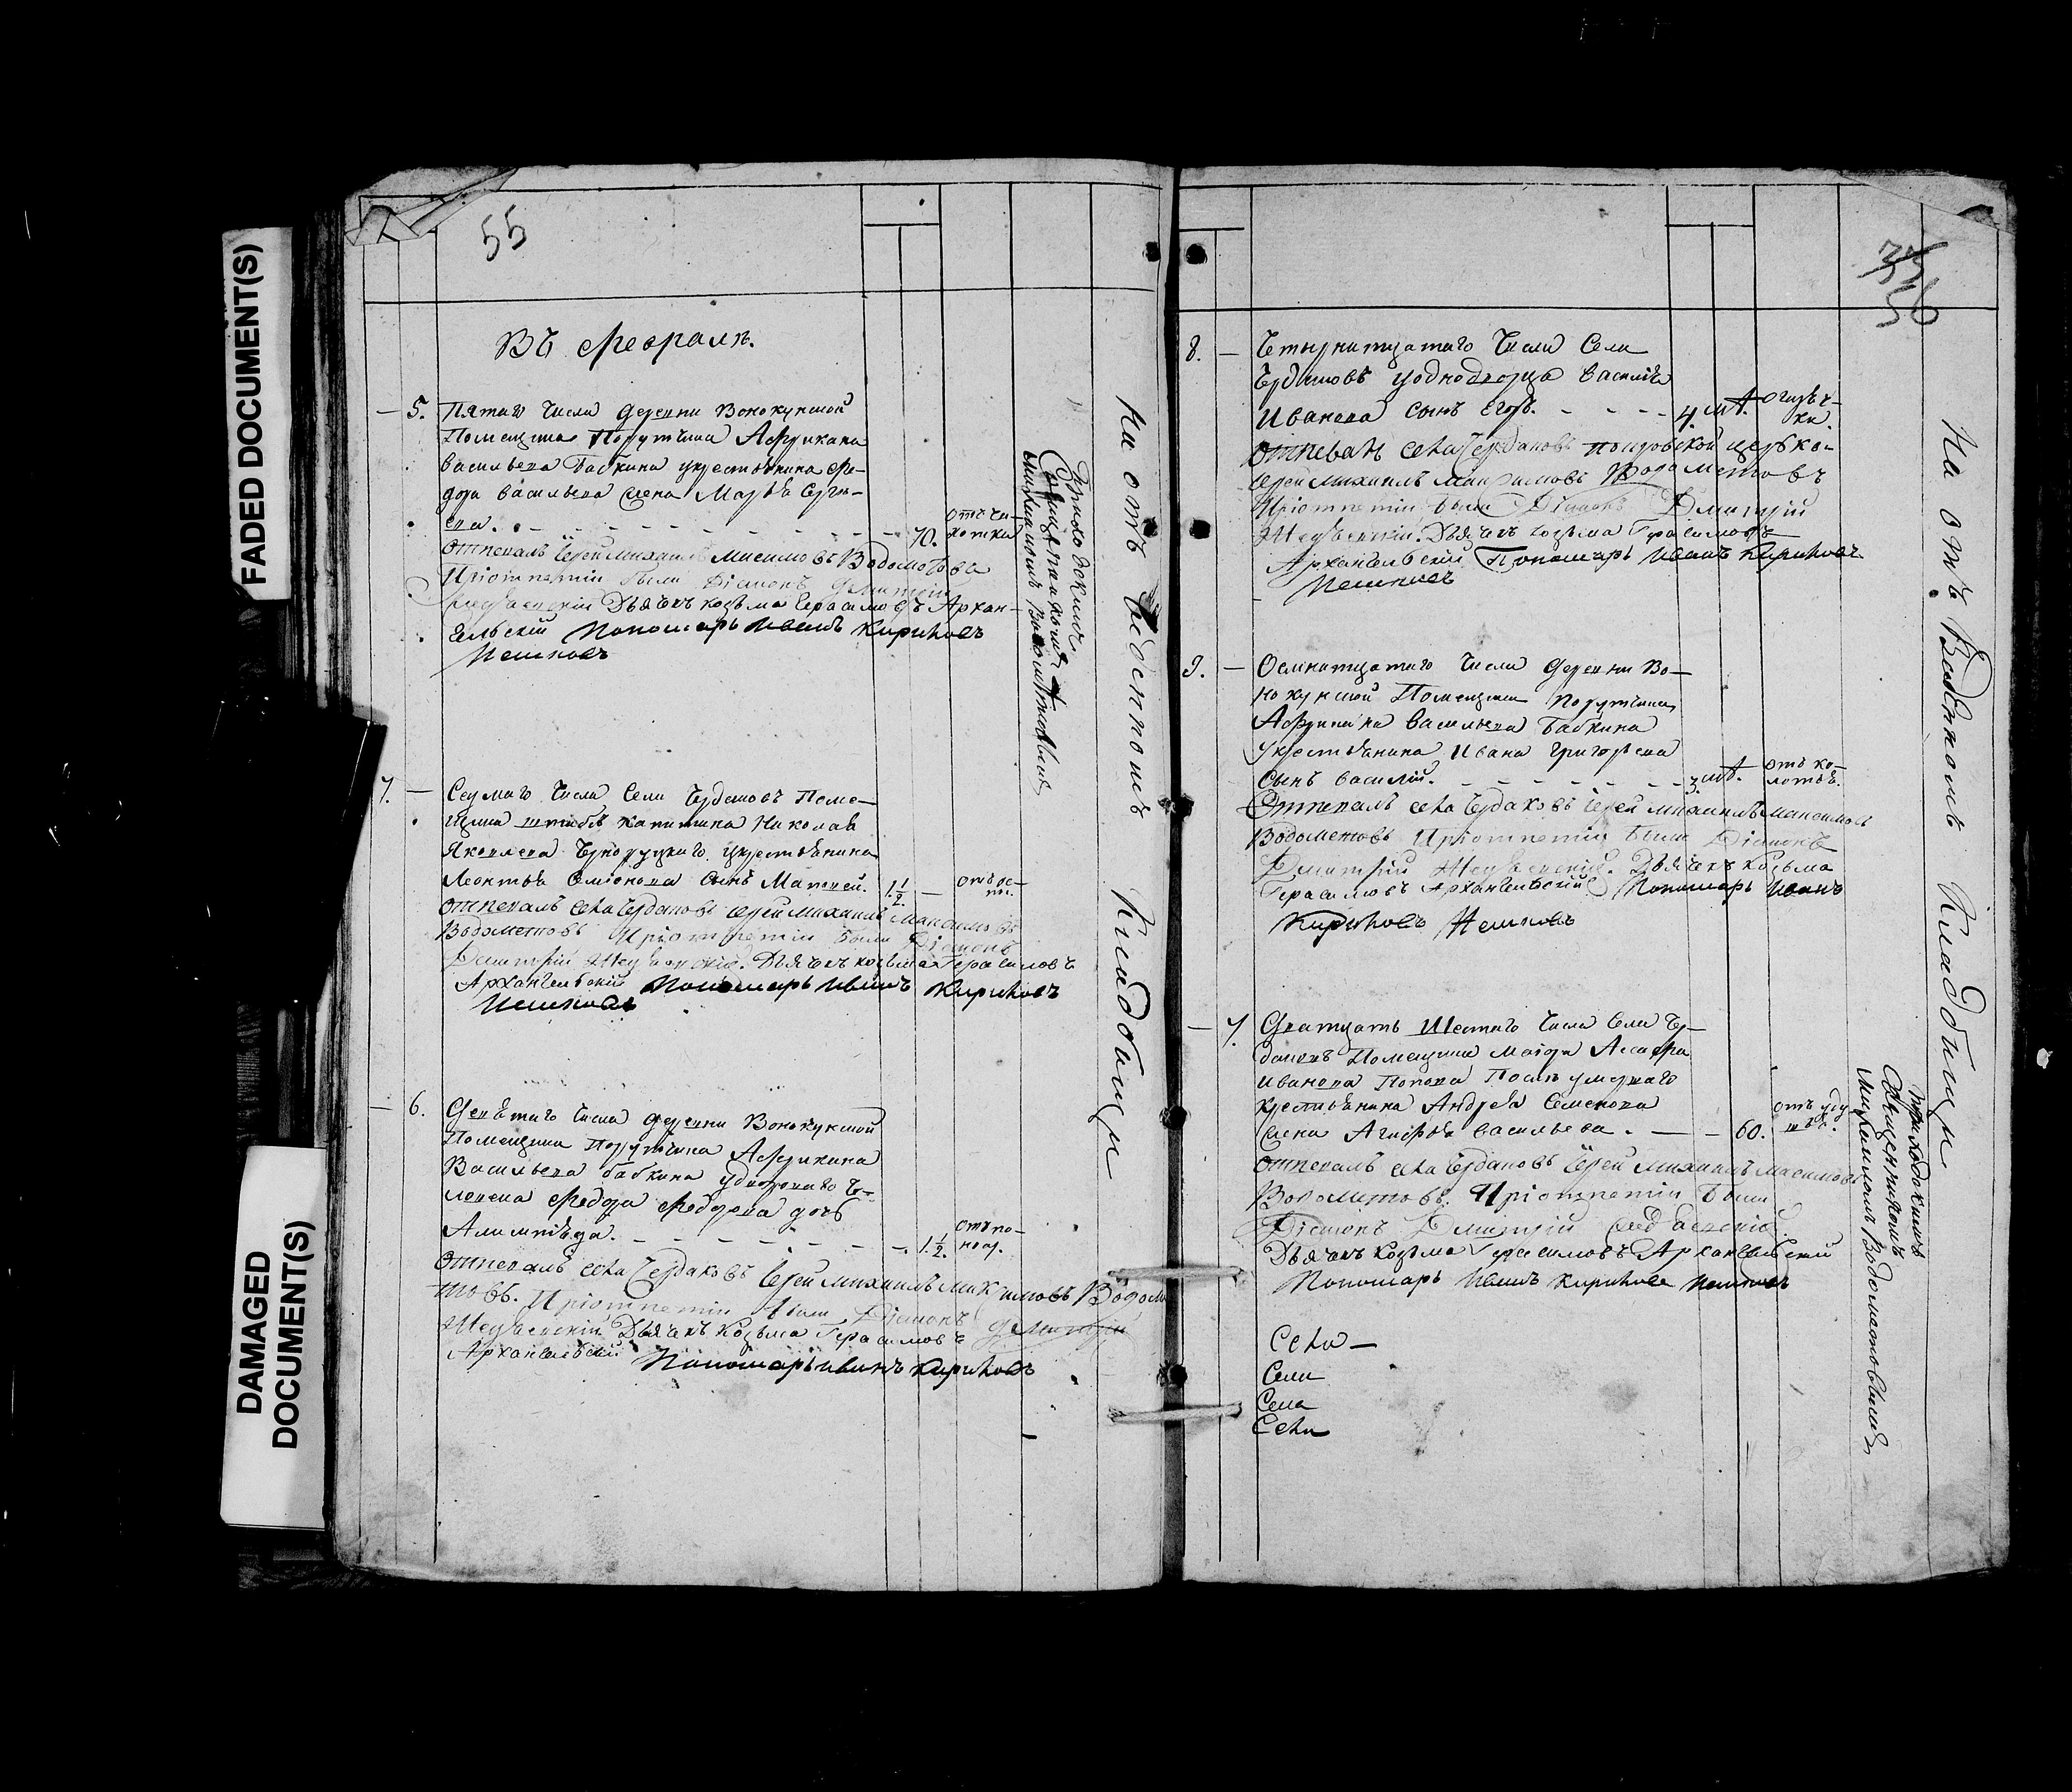 FADED DOCUMENT(S)
DAMAGED
DOCUMENT(S)
55
Въ Феврале.
5. Пятаго числа деревни Вонокунской
Помещика Порутчика Африкана
Васильева Бабкина укрестьянина Фе-
дора Васильева жена Марья Серге-
ева. 70. от чи-
хотки
Отпевалъ Іерей Михаилъ Максимовъ Водометовъ
Приотпетіи были Діаконъ Дмитрій
Дьячекъ Козьма Герасимовъ Архан-
гельскій Пономарь Иванъ Кириловъ
Пешковъ
7. Седмаго числа Села Чердаковъ Поме-
щика штабсъ капитана Николая
Яковлева укрестьянина
Леонтья Семіонова сынъ Матвей. 1 1/2 отъ ос-
пы.
Отпевалъ села Чердаковъ Іерей Михаилъ Максимовъ
Водометовъ Приотпетіи были Діаконъ
Дмитрій Дьячекъ Козьма Герасимовъ
Архангельскій Пономарь Иванъ Кириловъ
Пешковъ
6. Девятаго числа деревни Вонокунской
Помещика Порутчика Африкана
Васильева Бабкина удвороваго че-
ловека Федора Федорова дочь
Алимпіяда. 1 1/2. отъ по-
носу.
Отпевалъ села Чердаковъ Іерей Михаилъ Максимовъ Водоме-
товъ. Приотпетіи были Діаконъ Дмитрій
Дьячекъ Козьма Герасимовъ
Архангельскій Пономарь Иванъ Кириловъ
Приходскимъ
Священникомъ
Михаиломъ Водометовымъ
На отъ веденномъ Кладбищи
56
8. Четырнатцатаго числа Села
Чердаковъ уоднодворца Василья
Иванова сынъ Егоръ. 4. отъ
Отпевалъ села Чердаковъ Покровской церкви
Іерей Михаилъ Максимовъ Водометовъ
Приотпетіи были Діаконъ Дмитрій
Дьячекъ Козьма Герасимовъ
Архангельскій Пономарь Иванъ Кириловъ
Пешковъ
9. Осмнатцатаго числа деревни Во-
нокунской Помещика Порутчика
Африкана Васильева Бабкина
укрестьянина Ивана Григорьева
сынъ Василій. 3 отъ ко-
лотья.
Отпевалъ села Чердаковъ Іерей Михаилъ Максимовъ
Водометовъ Приотпетіи были Діаконъ
Дмитрій Дьячекъ Козьма
Герасимовъ Архангельскій Пономарь Иванъ
Кириловъ Пешковъ
7. Дватцать Шестаго числа Села Чер-
даковъ Помещика Маіора
Иванова Попова После умершаго
крестьянина Андрея Семенова
жена Агафья Васильева. 60. отъ уду-
шья.
Отпевалъ села Чердаковъ Іерей Михаилъ Максимовъ
Водометовъ. Приотпетіи были
Діаконъ Дмитрій
Дьячекъ Козьма Герасимовъ Архангельскій
Пономарь Иванъ Кириловъ Пешковъ
Села
Села
Села
Села
Приходскимъ
Священникомъ
Михаиломъ Водометовымъ
На отъ Веденномъ Кладбищи